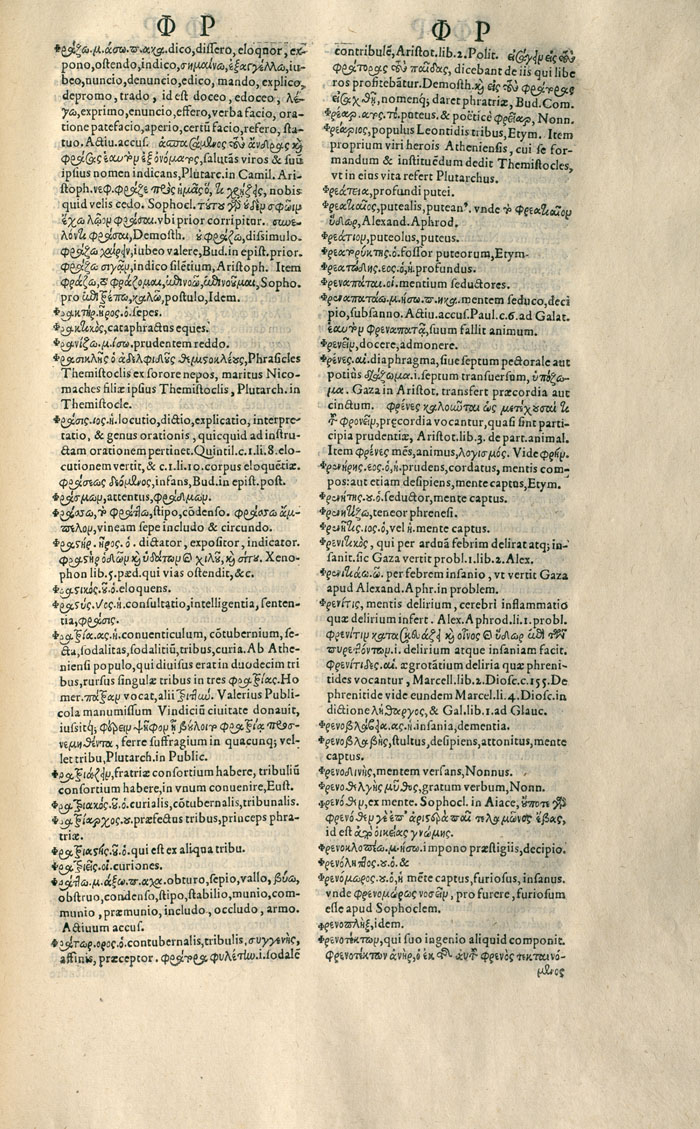 Φ Ρ
Φράζω.μ.άσω.π.ακα.dico, dissero, eloquor, ex-
pono, ostendo, indico, σημαίνω, ἐξαγγέλλω, iu-
beo, nuncio, denuncio, edico, mando, explico,
depromo, trado, id est doceo, edoceo, λέ-
γω, exprimo, enuncio, effero, verba facio, ora-
tione patefacio, aperio, certũ facio, refero, sta-
tuo. Actiu. accus. ἀσπασάμενος τοὺς ἄνδρας καὶ
φράσας ἑαυτὸν ἐξ ὀνόματος, salutãs viros & suũ
ipsius nomen indicans, Plutarc. in Camil. Ari-
stoph. νεφ. φράζε πρὸς ἡμᾶς ὅ, τι χρῄζεις, nobis
quid velis cedo. Sophocl.
ἔχω λόγον φράσαι. vbi prior corripitur. συνε-
λόντι φράσαι, Demosth. οὐ φράζω, dissimulo.
φράζω χαίρειν, iubeo valere, Bud. in epist. prior.
φράζω σιγᾷν, indico silẽtium, Aristoph. Item
φράζω, τὸ φράζομαι, Sopho.
pro καλῶ, postulo, Idem.
Φρακτήρ.ῆρος.ὁ.sepes.
Φρακτικὸς, cataphractus eques.
Φρανίζω.μ.ίσω.prudentem reddo.
Φρασικλῆς ὁ ἀδελφιδοῦς θεμιστοκλέους, Phrasicles
Themistoclis ex sorore nepos, maritus Nico-
maches filiæ ipsius Themistoclis, Plutarch. in
Themistocle.
Φράσις.ιος.ἡ.locutio, dictio, explicatio, interpre-
tatio, & genus orationis, quicquid ad instru-
ctam orationem pertinet. Quintil. c.1.li.8. elo-
cutionem vertit, & c.1.li.10. corpus eloquẽtiæ.
φράσεως δεόμενος, infans, Bud. in epist. post.
Φράσμων, attentus, φράδμων.
Φράσσω, τὸ φράττω, stipo, cõdenso. φράσσω ἄμ-
πελον, vineam sepe includo & circundo.
Φραστήρ.ῆρος. ὁ. dictator, expositor, indicator.
φραστὴρ ὁδῶν καὶ ὑδάτων καὶ χιλοῦ, καὶ σίτου. Xeno-
phon lib.5.pæd. qui vias ostendit, &c.
Φραστικὸς.οῦ.ὁ.eloquens.
Φραστὺς.ύος.ἡ.consultatio, intelligentia, senten-
tia, φράσις.
Φρατρία.ας.ἡ.conuenticulum, cõtubernium, se-
cta, sodalitas, sodalitiũ, tribus, curia. Ab Athe-
niensi populo, qui diuisus erat in duodecim tri
bus, rursus singulæ tribus in tres φρατρίας. Ho
mer. πάτραν vocat, alii τριττύν. Valerius Publi-
cola manumissum Vindiciũ ciuitate donauit,
iussitq; φέρειν ψῆφον ᾗ βούλοιτο φρατρίᾳ προσ-
νεμηθέντα, ferre suffragium in quacunq; vel-
let tribu, Plutarch. in Public.
Φρατριάζειν, fratriæ consortium habere, tribuliũ
consortium habere, in vnum conuenire, Eust.
Φρατριακὸς.οῦ.ὁ.curialis, cõtubernalis, tribunalis.
Φρατρίαρχος.ου.præfectus tribus, princeps phra-
triæ.
Φρατριαστὴς.οῦ.ὁ.qui est ex aliqua tribu.
Φρατριεῖς.οἱ.curiones.
Φράττω.μ.άξω.π.αχα.obturo, sepio, vallo, βύω,
obstruo, condenso, stipo, stabilio, munio, com-
munio, præmunio, includo, occludo, armo.
Actiuum accus.
Φράτωρ.ορος.ὁ.contubernalis, tribulis, συγγενὴς,
affinis, præceptor. φράτορα φυλέτην.i.sodalẽ
Φ Ρ
contribulẽ, Aristot.lib.2.Polit. εἰσάγειν εἰς τοὺς
φράτορας τοὺς παῖδας, dicebant de iis qui libe
ros profitebãtur. Demosth. καὶ εἰς τοὺς φράτορας
nomenq; daret phratriæ, Bud. Com.
Φρέαρ.ατος.τὸ.puteus, & poëticè φρεῖαρ, Nonn.
Φρεάριος, populus Leontidis tribus, Etym. Item
proprium viri herois Atheniensis, cui se for-
mandum & instituẽdum dedit Themistocles,
vt in eius vita refert Plutarchus.
Φρεάτεια, profundi putei.
Φρεατιαῖος, putealis, puteanꝰ. vnde τὸ φρεατιαῖον
ὕδωρ, Alexand. Aphrod.
Φρεάτιον, puteolus, puteus.
Φρεατορύκτης.ὁ.fossor puteorum, Etym.
Φρεατώδης.εος.ὁ.ἡ.profundus.
Φρεναπάται.οἱ.mentium seductores.
Φρεναπατάω.μ.ήσω.π.ηκα.mentem seduco, deci
pio, subsanno. Actiu. accus. Paul.c.6.ad Galat.
ἑαυτὸν φρεναπατᾷ, suum fallit animum.
Φρενεῖν, docere, admonere.
Φρένες.αἱ.diaphragma, siue septum pectorale aut
potiùs διάζωμα.i.septum transuersum, ὑπόζω-
μα. Gaza in Aristot. transfert præcordia aut
cinctum. φρένες καλοῦνται ὡς μετέχουσαί τι
τοῦ φρονεῖν, præcordia vocantur, quasi sint parti
cipia prudentiæ, Aristot.lib.3.de part.animal.
Item φρένες mẽs, animus, λογισμός. Vide φρήν.
Φρενήρης.εος.ὁ.ἡ.prudens, cordatus, mentis com-
pos: aut etiam desipiens, mente captus, Etym.
Φρενήτης.ου.ὁ.seductor, mente captus.
Φρενητίζω, teneor phrenesi.
Φρενῆτις.ιος.ὁ, vel ἡ.mente captus.
Φρενιτικὸς, qui per arduã febrim delirat atq; in-
sanit. sic Gaza vertit probl.1.lib.2.Alex.
Φρενιτιάω.ῶ. per febrem insanio, vt vertit Gaza
apud Alexand.Aphr.in problem.
Φρενῖτις, mentis delirium, cerebri inflammatio
quæ delirium infert. Alex.Aphrod.li.1.probl.
φρενῖτιν κατασκευάζει καὶ οἶνος καὶ ὕδωρ ἐπὶ τῶν
πυρεττόντων.i. delirium atque insaniam facit.
φρενίτιδες.αἱ. ægrotãtium deliria quæ phreni-
tides vocantur, Marcell.lib.2.Diosc.c.155.De
phrenitide vide eundem Marcel.li.4.Diosc.in
dictione λήθαργος, & Gal.lib.1.ad Glauc.
Φρενοβλάβεια.ας.ἡ.insania, dementia.
Φρενοβλαβὴς, stultus, desipiens, attonitus, mente
captus.
Φρενοδινὴς, mentem versans, Nonnus.
Φρενοθελγὴς μῦθος, gratum verbum, Nonn.
Φρενόθεν, ex mente. Sophocl. in Aiace, οὔποτε γὰρ
φρενόθεν γ' ἐπ' ἀριστερὰ παῖ τελαμῶνος ἔβας,
id est ἀπὸ οἰκείας γνώμης.
Φρενοκλοπέω.μ.ήσω.impono præstigiis, decipio.
Φρενόληπτος.ου.ὁ. &
Φρενόμωρος.ου.ὁ.ἡ mẽte captus, furiosus, insanus.
vnde φρενομώρως νοσεῖν, pro furere, furiosum
esse apud Sophoclem.
Φρενοπλὴξ, idem.
Φρενοτέκτων, qui suo ingenio aliquid componit.
φρενοτέκτων ἀνὴρ, ὁ ἐκ τῆς αὐτοῦ φρενὸς τεκταινό-
μενος